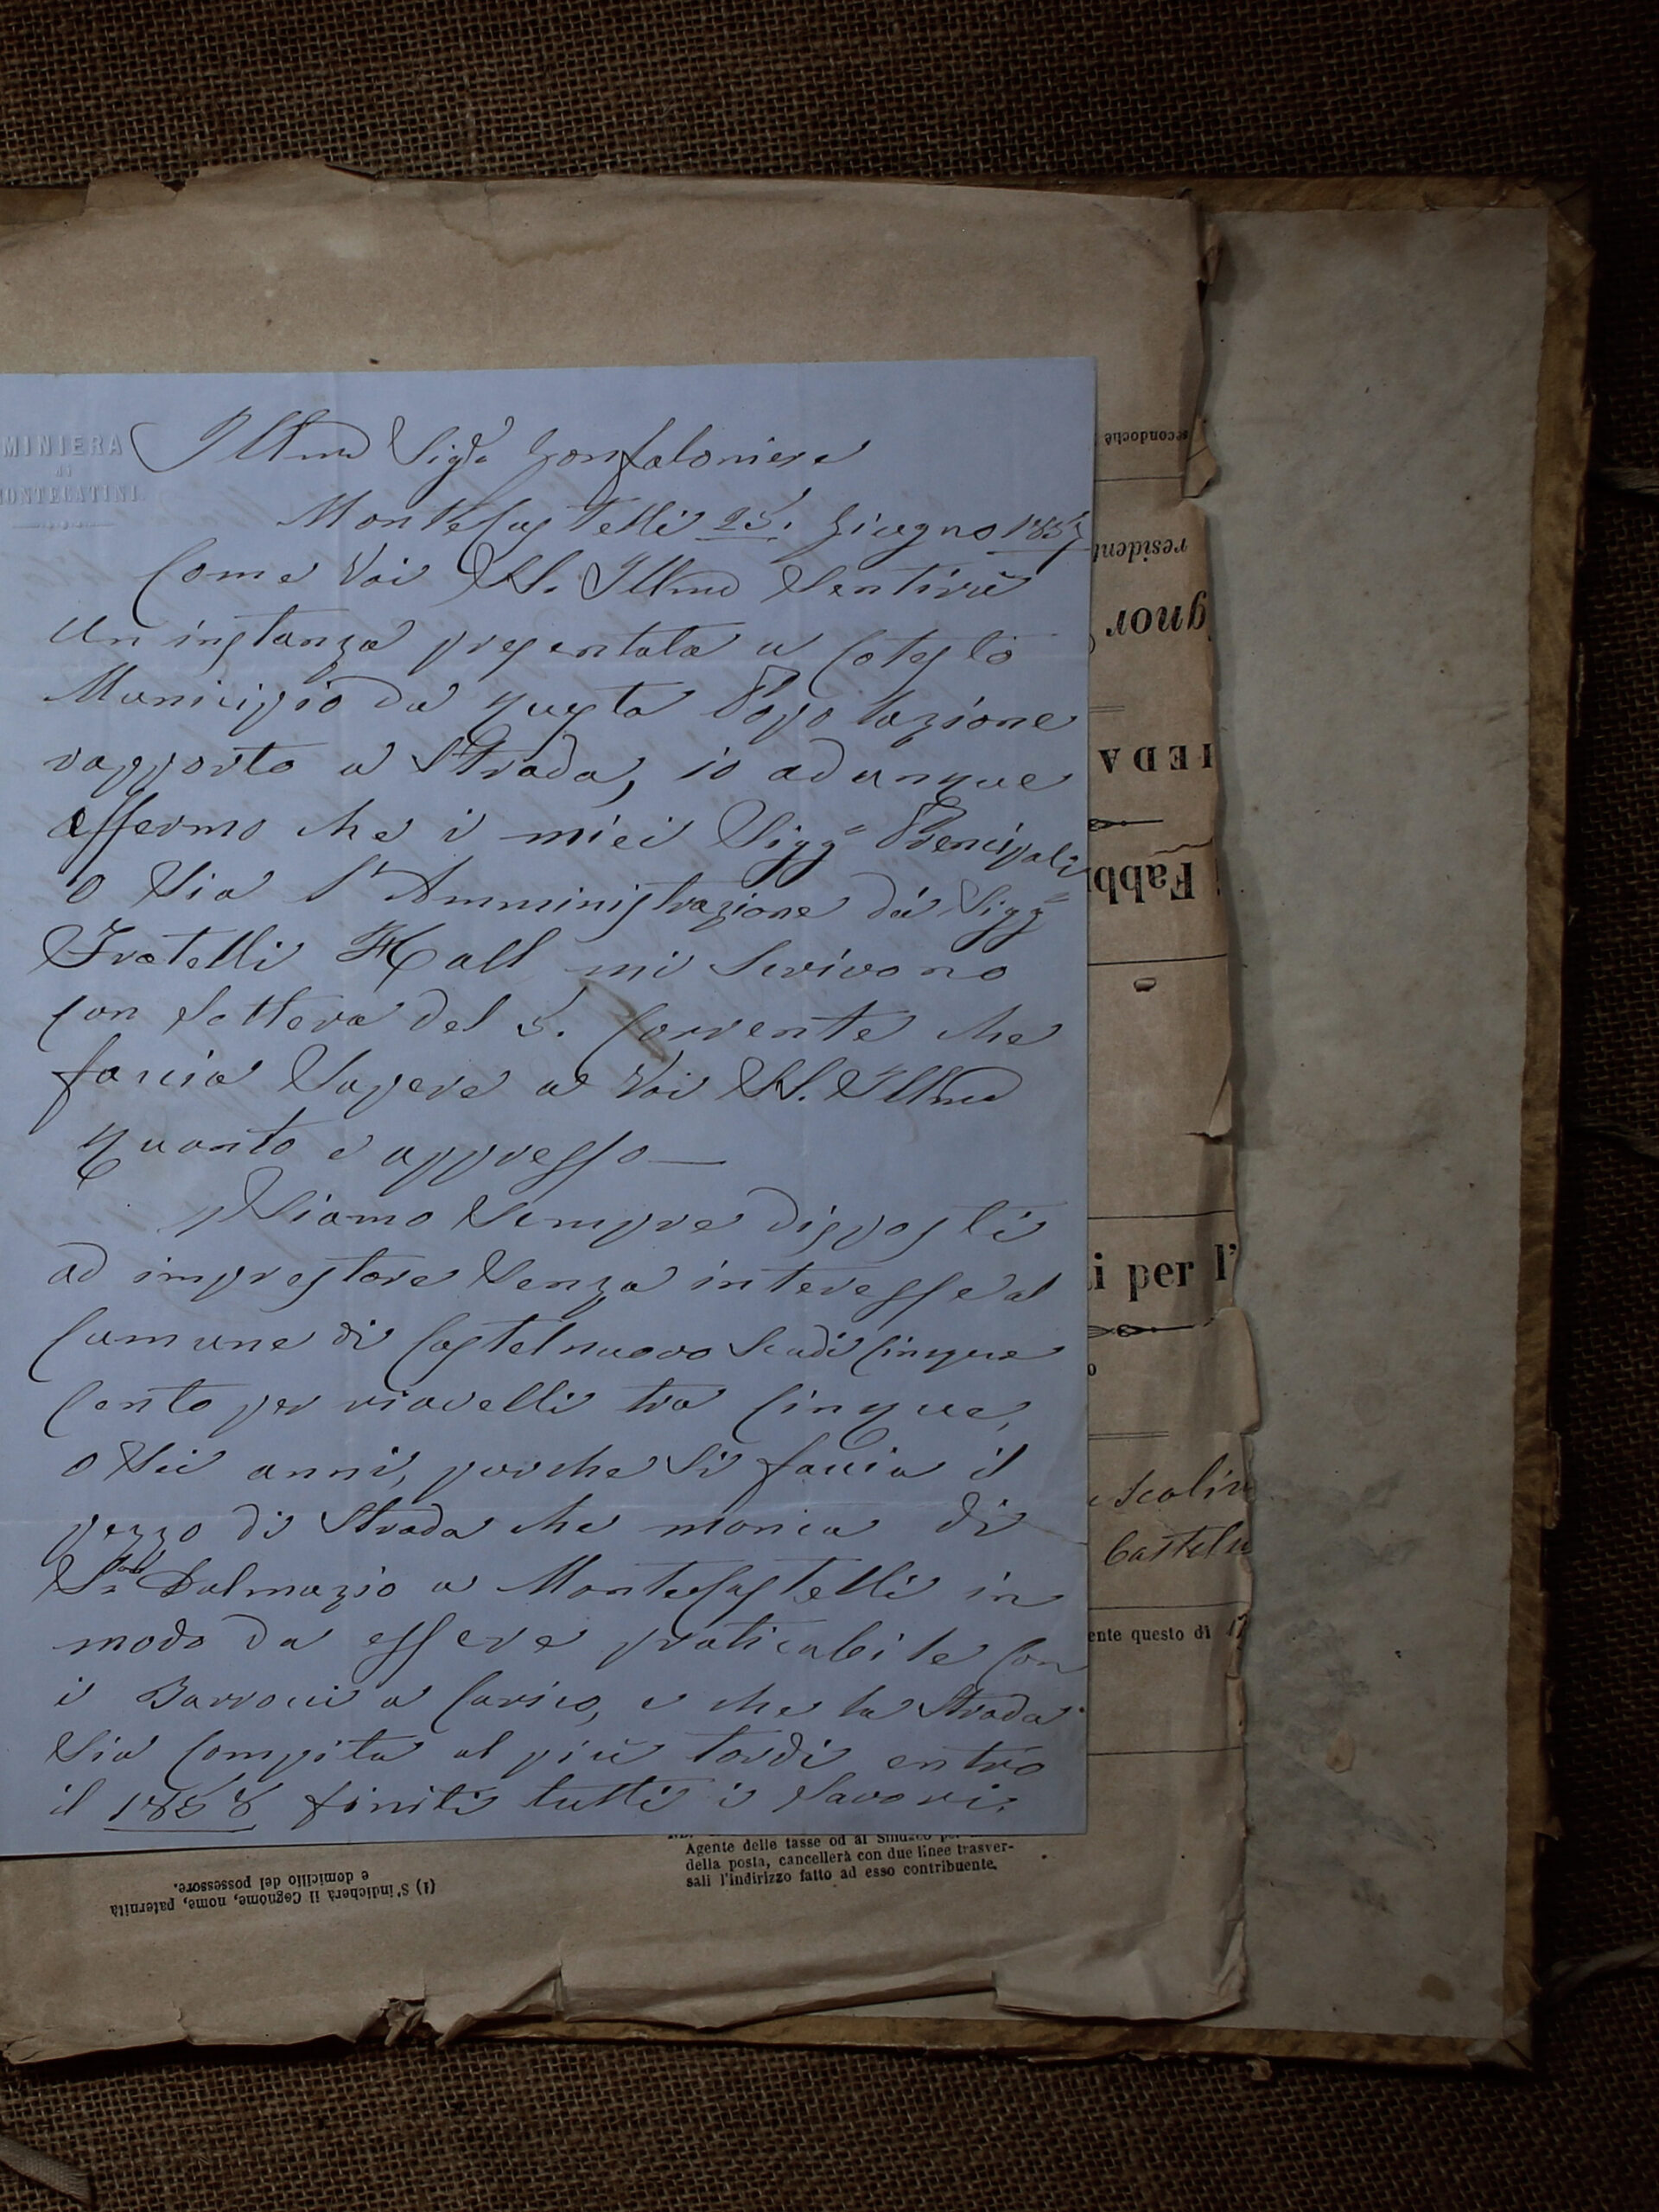 MINIERA
di
MONTECATINI
Illmo Sigre Gonfaloniere
MonteCastelli 25. Giugno 1857
Come Voi SS. Illmo Sentirà
un instanza presentata a Cotesto
Municipio da questa Popolazione
rapporto a Strada, io adunque
affermo che i miei Sigg Principali
o Sia l'Amministrazione dei Sigg
Fratelli Hall mi Scrivono
Con Lettera del 5. Corrente che
faccia Sapere a Voi SS. Illmo
quanto e appresso—
Siamo Sempre disposti
ad imprestare Senza interesse al
Comune di Castelnuovo Scudi Cinque
Cento per riavelli tra Cinque,
o Sei anni, purche Si faccia il
pezzo di Strada che manca di
Sn Dalmazio a MonteCastelli in
modo da essere praticabile Con
i Barrocci a Carico, e che la Strada
Sia Compita al più tardi entro
il 1858 finiti tutti i Lavori.
secondochè
resident
gnor
EDA
Fabb
i per l'
o
Scalin
Casteln
ente questo di 17
Agente delle tasse od al Sindaco
della posta, cancellerà con due linee trasver-
sali l'indirizzo fatto ad esso contribuente.
(1) S'indicherà il Cognome, nome, paternità
e domicilio del possessore.